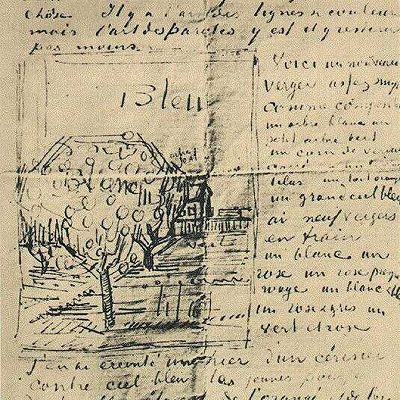 chose. Il y a l'art des lignes et couleurs
mais l'art des paroles y est et y restera
pas moins.
Voici un nouveau
verger assez simple
comme composition
un arbre blanc un
petit arbre vert
un coin de verdure
lilas un toit orangé
un grand ciel bleu
ai neuf vergers
en train
un blanc un
rose un rose presque
rouge un blanc et
un rose gris un
vert et rose
Bleu
Blanc
vert
lilas
J'en ai éreinté un hier d'un cerisier
contre ciel bleu les jeunes pousses
de l'orangé